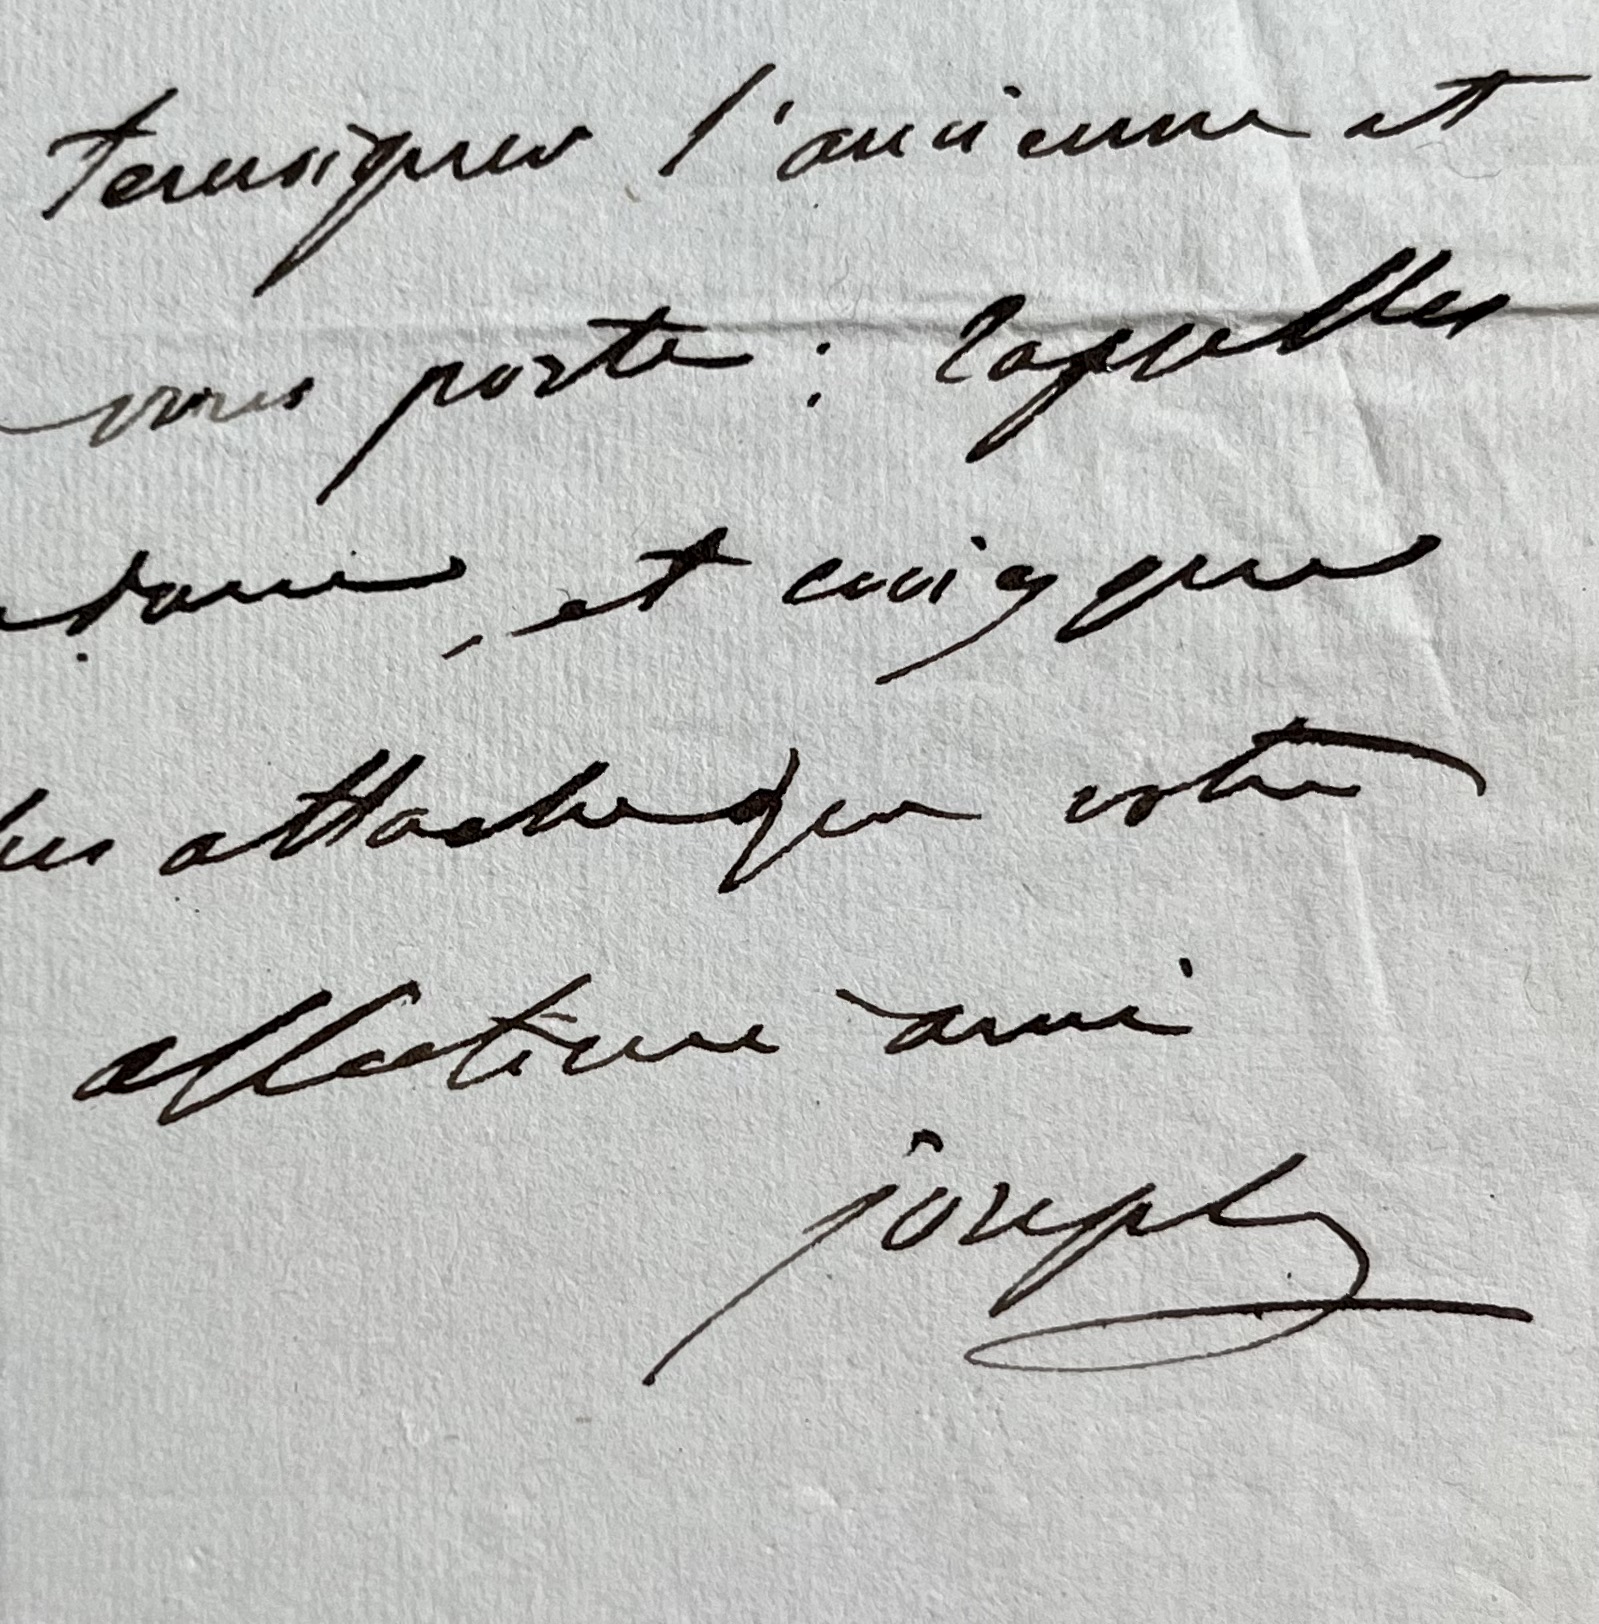 temoigner l'ancienne et
vous porte : rappelles
et que
attaché que votre
affectionné ami
joseph